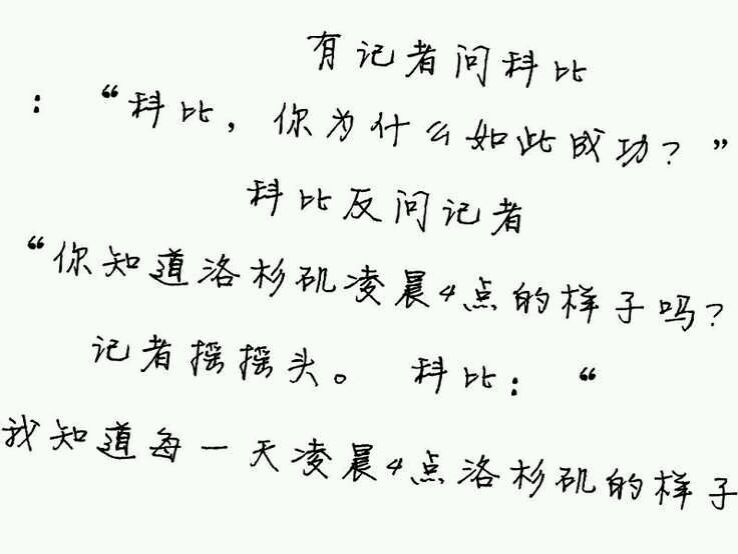 有记者问科比
：“科比，你为什么如此成功？”
科比反问记者
“你知道洛杉矶凌晨4点的样子吗？
记者摇摇头。 科比：“
我知道每一天凌晨4点洛杉矶的样子